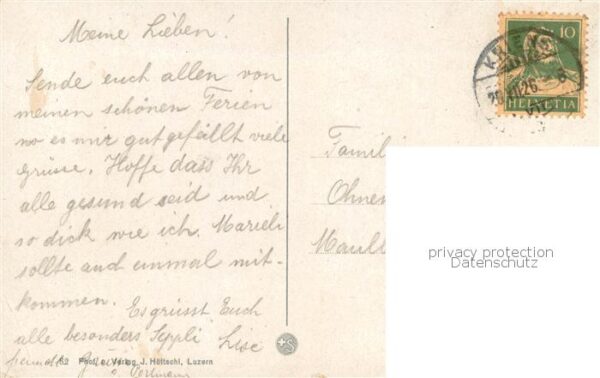 Meine Lieben!
Sende euch allen von
meinen schönen Ferien
wo es mir gut gefällt viele
Grüsse. Hoffe dass Ihr
alle gesund seid und
so dick wie ich. Marieli
sollte auch einmal mit-
kommen. Es grüsst Euch
alle besonders Seppli
Lise
62 Phot. u. Verlag J. Höltschi, Luzern
Famil
Ohnen
Maull
10
HELVETIA
privacy protection
Datenschutz